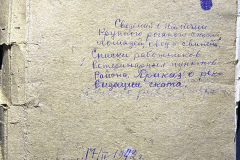 Сведения о наличии
крупного рогатого скота,
лошадей, овец, свиней.
Списки работников
ветеринарных пунктов
района. Приказ о рек
визиции скота.
17/III 1942